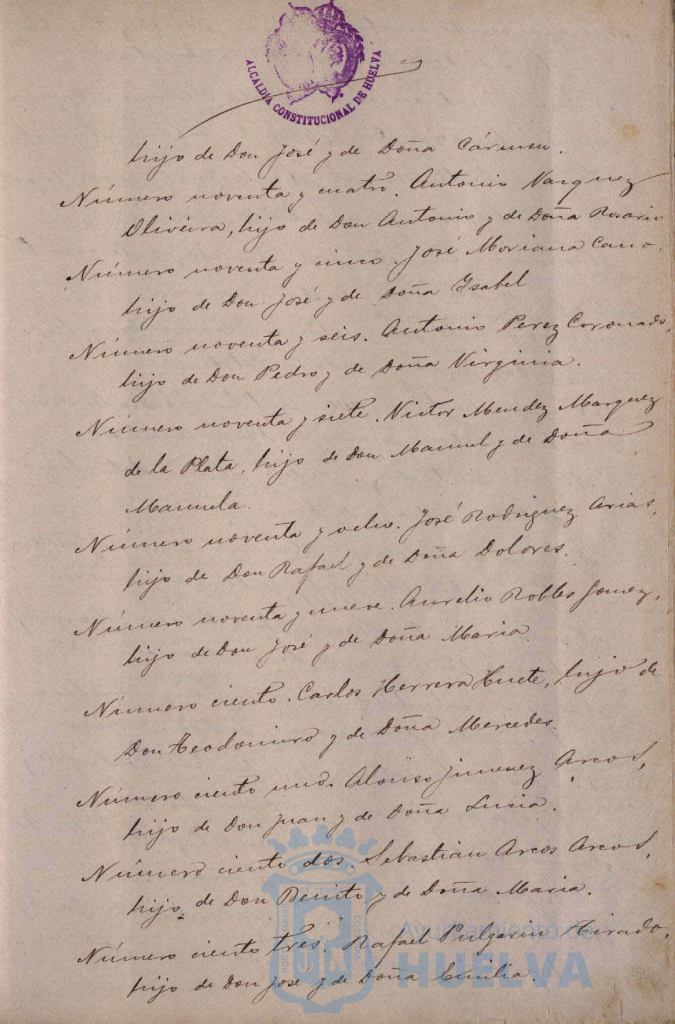 ALCALDIA CONSTITUCIONAL DE HUELVA
hijo de Don José y de Doña Cármen.
Número noventa y cuatro. Antonio Vazquez
Oliveira, hijo de Don Antonio y de Doña Rosario
Número noventa y cinco. José Moriana Cano.
hijo de Don José y de Doña Isabel
Número noventa y seis. Antonio Perez Coronado,
hijo de Don Pedro y de Doña Virginia.
Número noventa y siete. Victor Mendez Marquez
de la Plata, hijo de Don Manuel y de Doña
Manuela.
Número noventa y ocho. José Rodriguez Arias,
hijo de Don Rafael y de Doña Dolores.
Número noventa y nueve. Aurelio Robles Gomez,
hijo de Don José y de Doña Maria
Número ciento. Carlos Herrera Huete, hijo de
Don Teodomiro y de Doña Mercedes.
Número ciento uno. Alonso Jimenez Arcos,
hijo de Don Juan y de Doña Lucia.
Número ciento dos. Sebastian Arcos Arcos,
hijo de Don Benito y de Doña Maria.
Número ciento tres. Rafael Pulgarin Tirado,
hijo de Don José y de Doña Emilia.
Ayuntamiento de
HUELVA